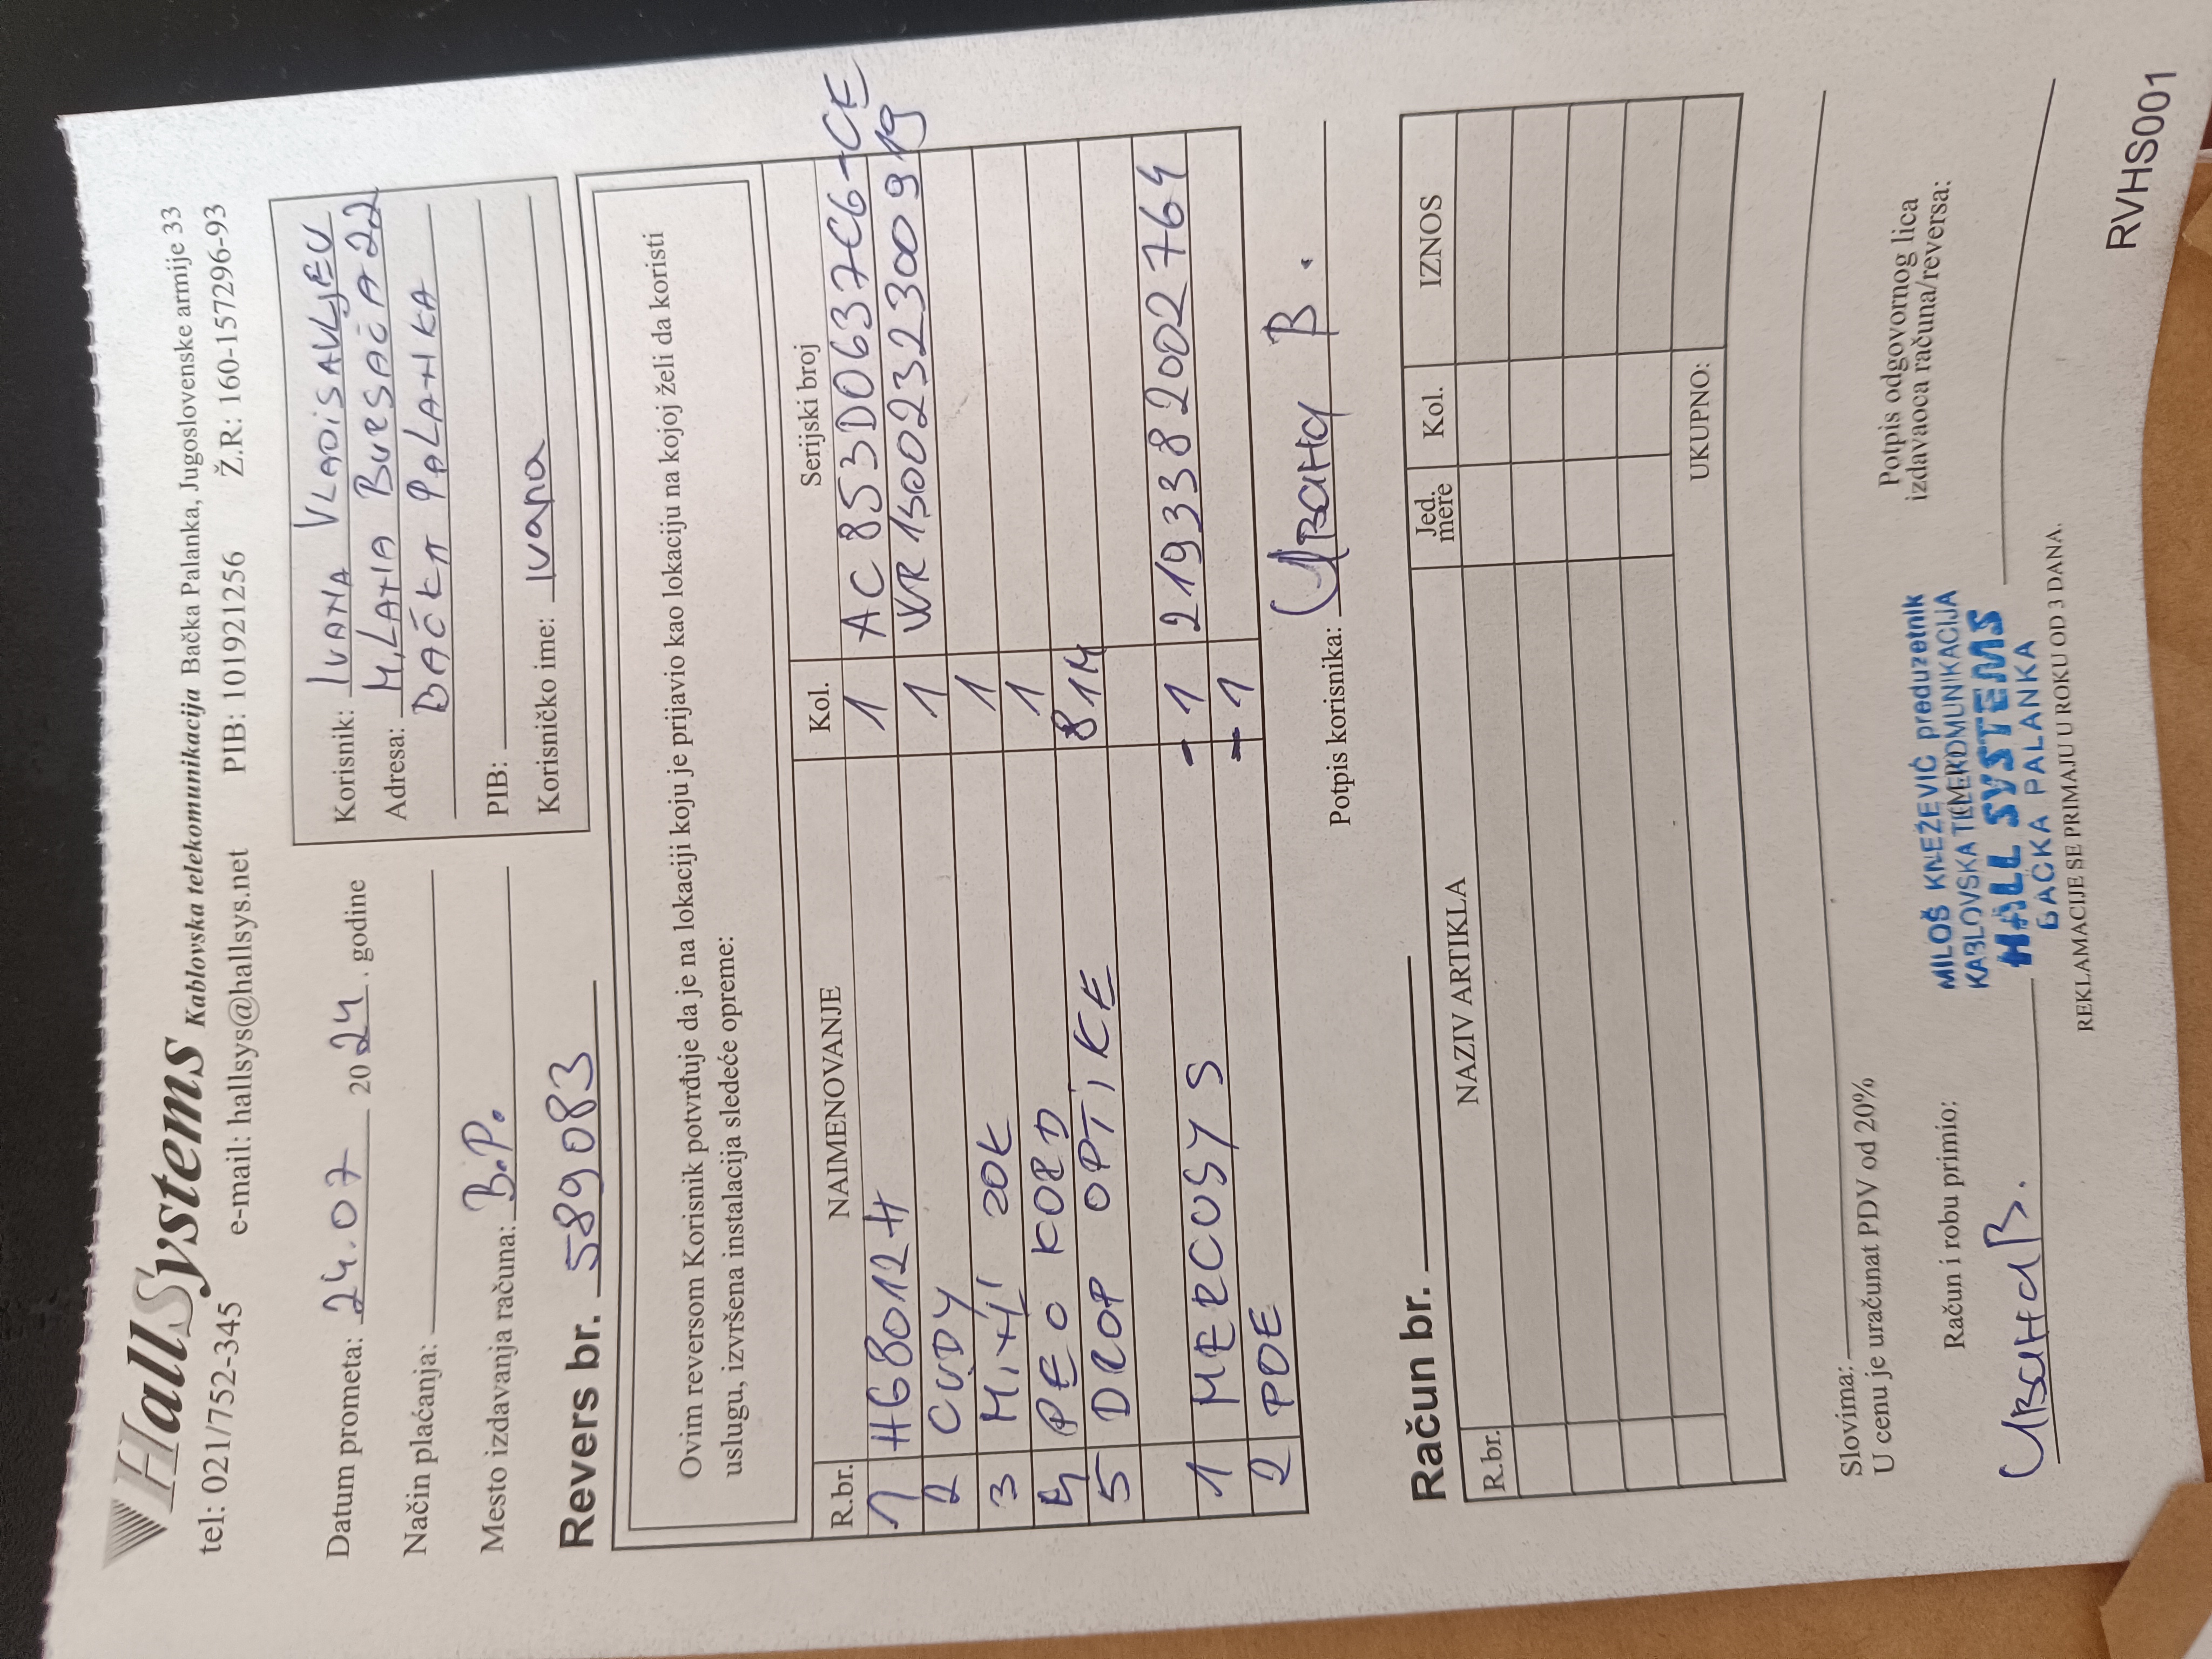 HallSystems Kablovska telekomunikacija Bačka Palanka, Jugoslovenske armije 33
tel: 021/752-345 e-mail: hallsys@hallsys.net PIB: 101921256 Ž.R.: 160-157296-93
Datum prometa: 24.07 2024. godine
Način plaćanja:
Mesto izdavanja računa: B.P.
Korisnik: IVANA VLADISAVLJEV
Adresa: MILANA BURSAĆA 22
BAČKA PALANKA
PIB:
Korisničko ime: Ivana
Revers br. 589083
Ovim reversom Korisnik potvrđuje da je na lokaciji koju je prijavio kao lokaciju na kojoj želi da koristi
uslugu, izvršena instalacija sledeće opreme:
R.br. NAIMENOVANJE Kol. Serijski broj
1 HG8012H 1 AC853D0637C6-CE
2 CUDY 1 WR1500232300919
3 MINI ZOK 1
4 PEO KORD 1
5 DROP OPTIKE 81M
1 MERCUSYS -1 2193382002764
2 POE -1
Potpis korisnika: Ивана В.
Račun br.
R.br. NAZIV ARTIKLA Jed. mere Kol. IZNOS
UKUPNO:
Slovima:
U cenu je uračunat PDV od 20%
Račun i robu primio:
Ивана В.
MILOŠ KNEŽEVIĆ preduzetnik
KABLOVSKA TELEKOMUNIKACIJA
HALL SYSTEMS
BAČKA PALANKA
Potpis odgovornog lica
izdavaoca računa/reversa:
REKLAMACIJE SE PRIMAJU U ROKU OD 3 DANA.
RVHS001